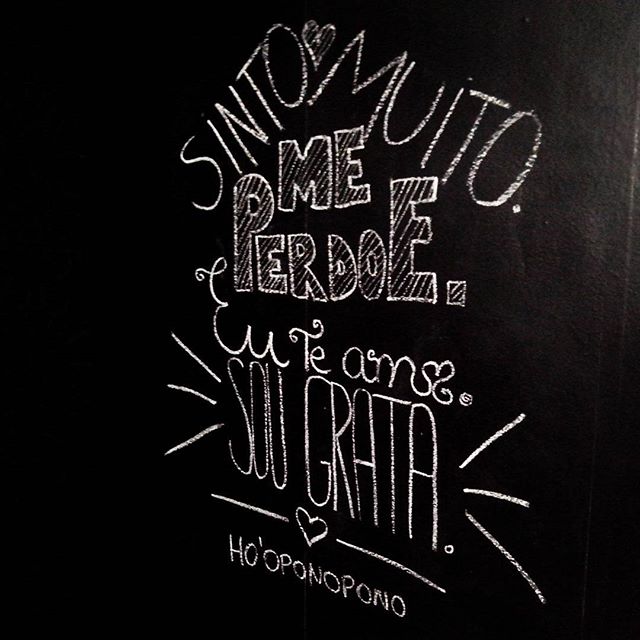 SINTO MUITO.
ME
PERDOE.
Eu Te amo.
SOU GRATA.
HO'OPONOPONO